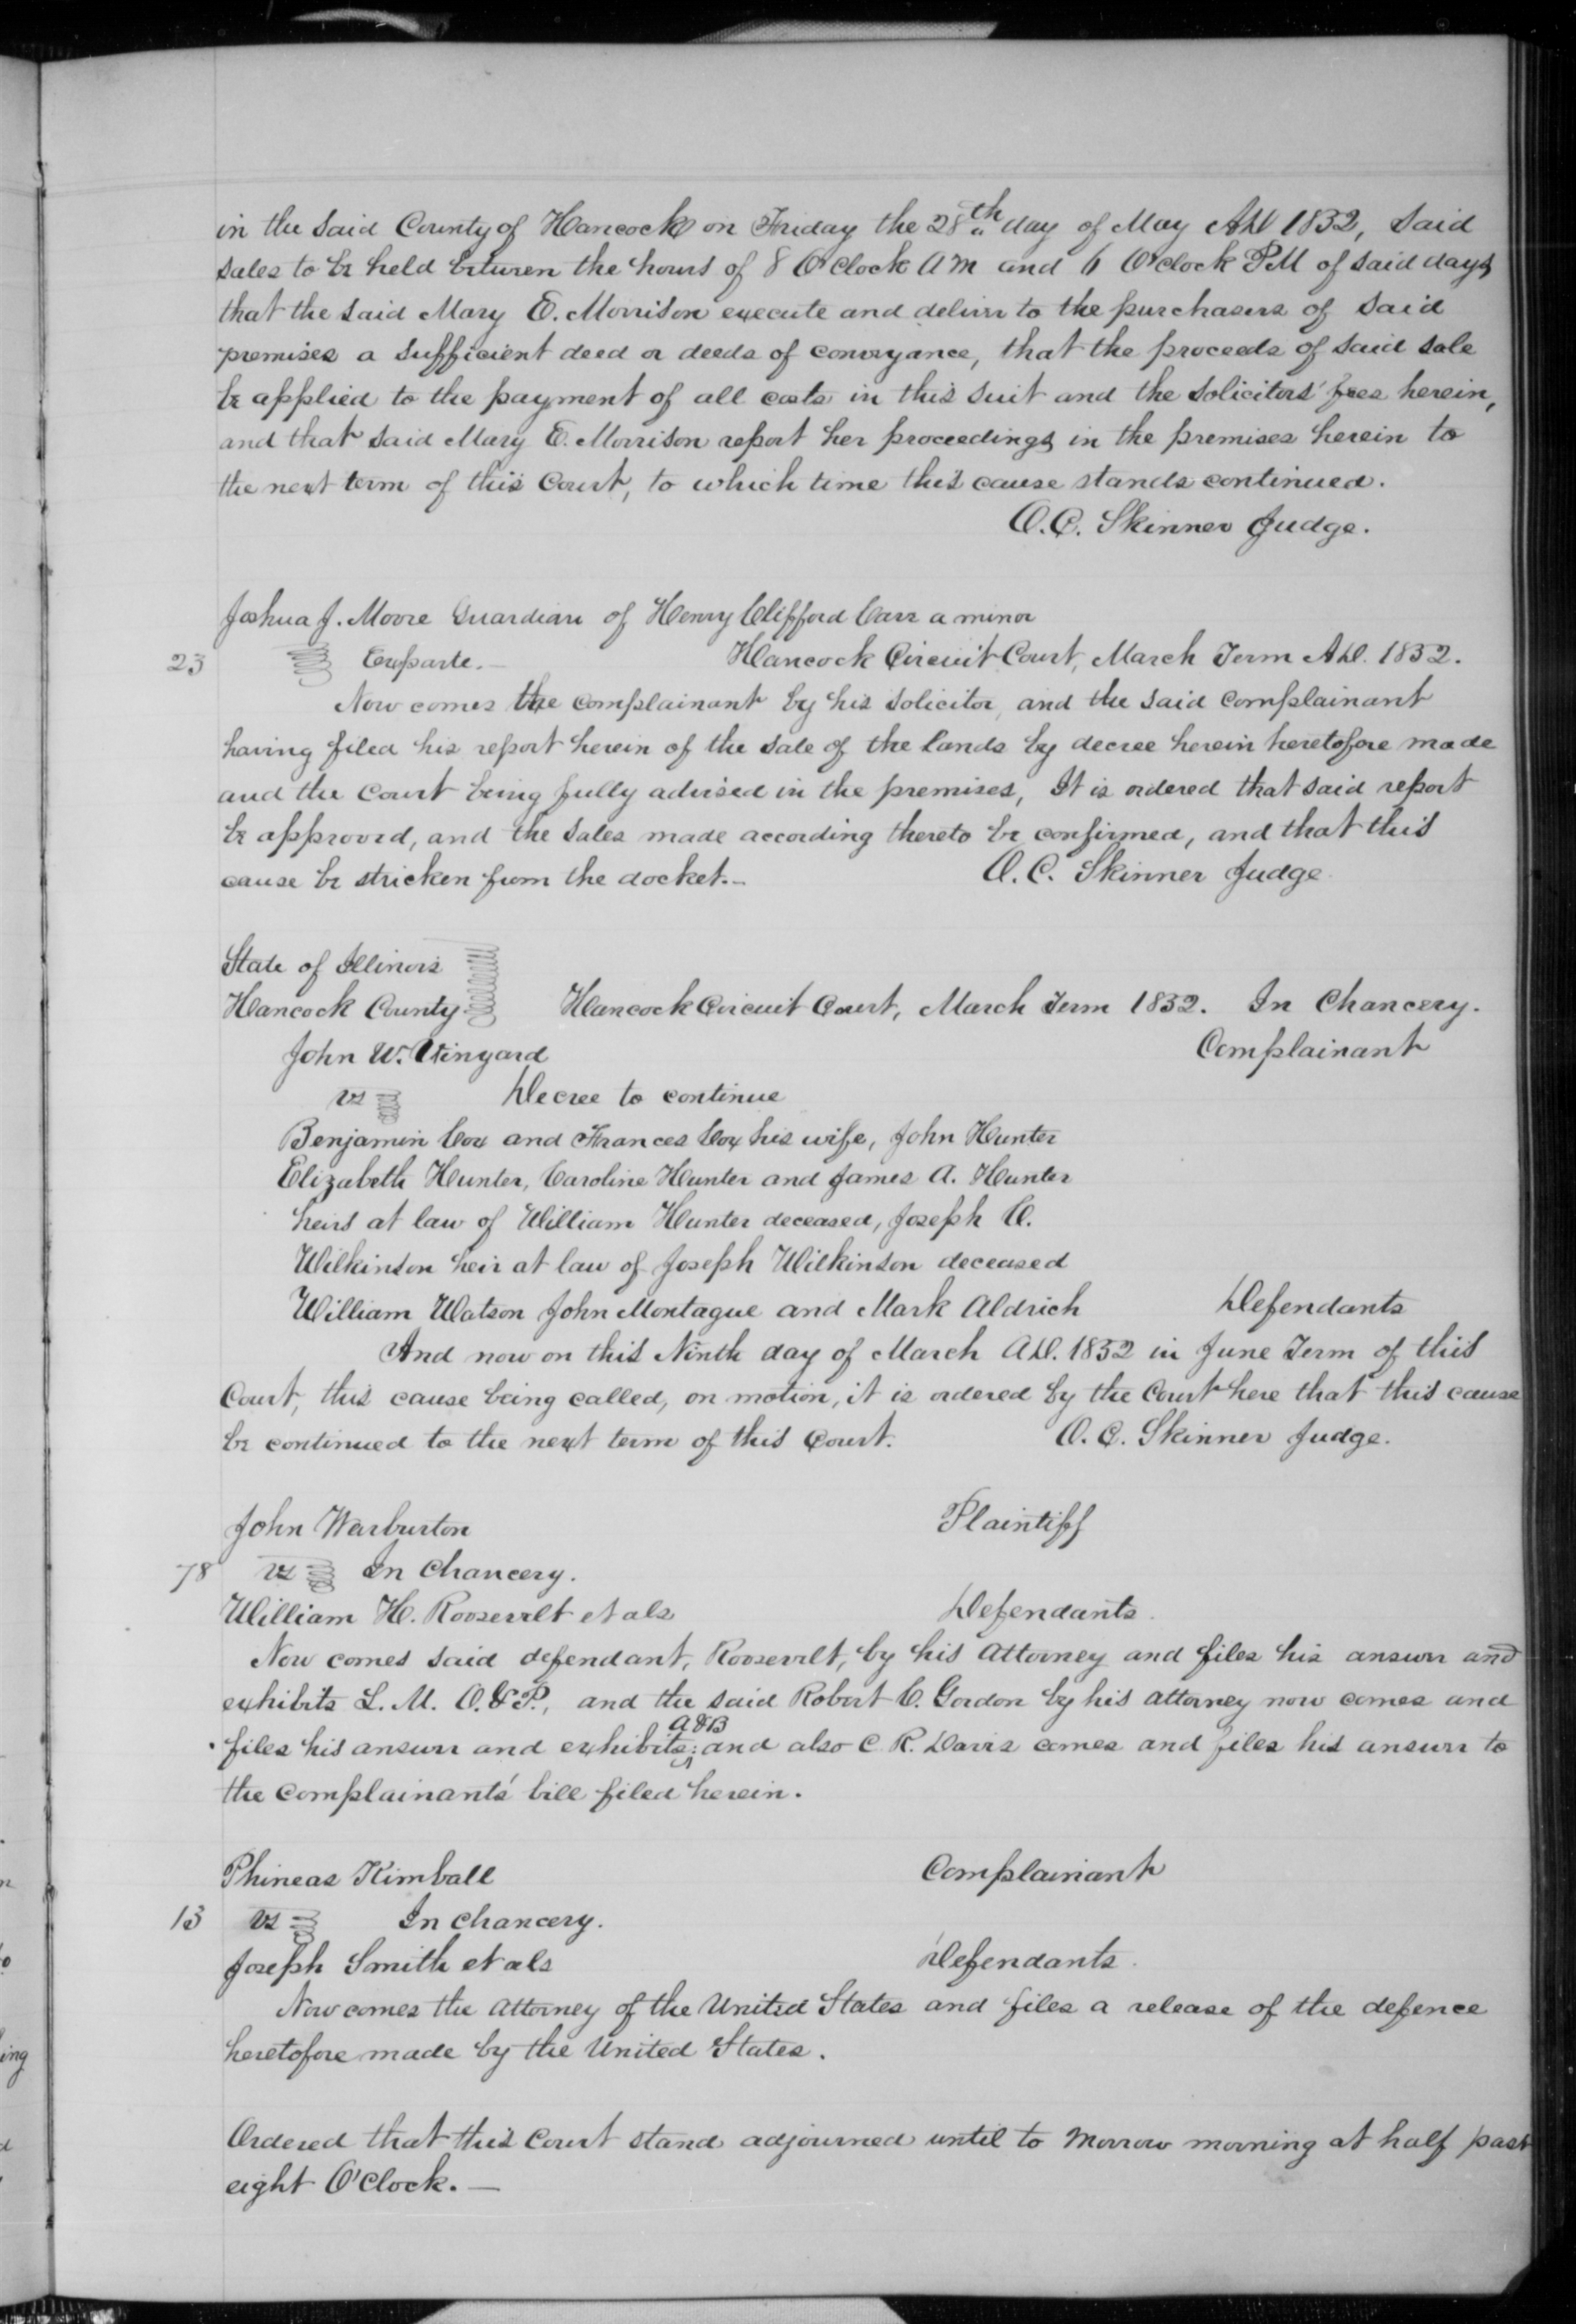 in the said County of Hancock on Friday the 28th day of May AD 1852, said
sales to be held between the hours of 8 O'clock AM and 6 O'clock PM of said days
that the said Mary E. Morrison execute and deliver to the purchasers of said
premises a sufficient deed or deeds of conveyance, that the proceeds of said sale
be applied to the payment of all costs in this suit and the solicitors' fees herein,
and that said Mary E. Morrison report her proceedings in the premises herein to
the next term of this Court, to which time this cause stands continued.
O.C. Skinner Judge.
Joshua J. Moore Guardian of Henry Clifford Carr a minor
23 Exparte.— Hancock Circuit Court, March Term AD. 1852.
Now comes the complainant by his solicitor, and the said complainant
having filed his report herein of the sale of the lands by decree herein heretofore made
and the Court being fully advised in the premises, It is ordered that said report
be approved, and the sales made according thereto be confirmed, and that this
cause be stricken from the docket.— O.C. Skinner Judge
State of Illinois
Hancock County Hancock Circuit Court, March Term 1852. In Chancery.
John W. Vinyard Complainant
vs Decree to continue
Benjamin Cox and Frances Cox his wife, John Hunter
Elizabeth Hunter, Caroline Hunter and James A. Hunter
heirs at law of William Hunter deceased, Joseph C.
Wilkinson heir at law of Joseph Wilkinson deceased
William Watson John Montague and Mark Aldrich Defendants
And now on this Ninth day of March AD. 1852 in June Term of this
Court, this cause being called, on motion, it is ordered by the Court here that this cause
be continued to the next term of this Court. O.C. Skinner Judge.
John Warburton Plaintiff
78 vs In Chancery.
William H. Roosevelt et als Defendants.
Now comes said defendant, Roosevelt, by his Attorney and files his answer and
exhibits L. M. O. & P., and the said Robert C. Gordon by his attorney now comes and
A & B
files his answer and exhibits; and also C. R. Davis comes and files his answer to
the complainants' bill filed herein.
Phineas Kimball Complainant
13 vs In Chancery.
Joseph Smith et als Defendants.
Now comes the Attorney of the United States and files a release of the defence
heretofore made by the United States.
Ordered that this Court stand adjourned until to morrow morning at half past
eight O'Clock.—